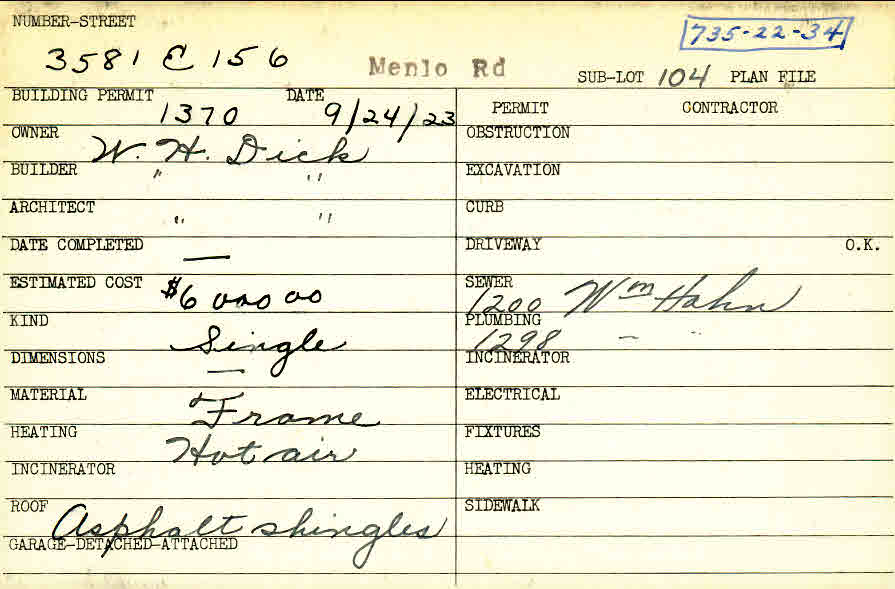 NUMBER-STREET
735-22-34
3581 E 156
Menlo Rd
SUB-LOT 104 PLAN FILE
BUILDING PERMIT 1370 DATE 9/24/23
PERMIT CONTRACTOR
OWNER W. H. Dick
OBSTRUCTION
BUILDER " "
EXCAVATION
ARCHITECT " "
CURB
DATE COMPLETED —
DRIVEWAY O.K.
ESTIMATED COST $6000 00
SEWER 1200 Wm Hahn
KIND Single
PLUMBING 1298 – "
DIMENSIONS —
INCINERATOR
MATERIAL Frame
ELECTRICAL
HEATING Hot air
FIXTURES
INCINERATOR
HEATING
ROOF Asphalt shingles
SIDEWALK
GARAGE-DETACHED-ATTACHED